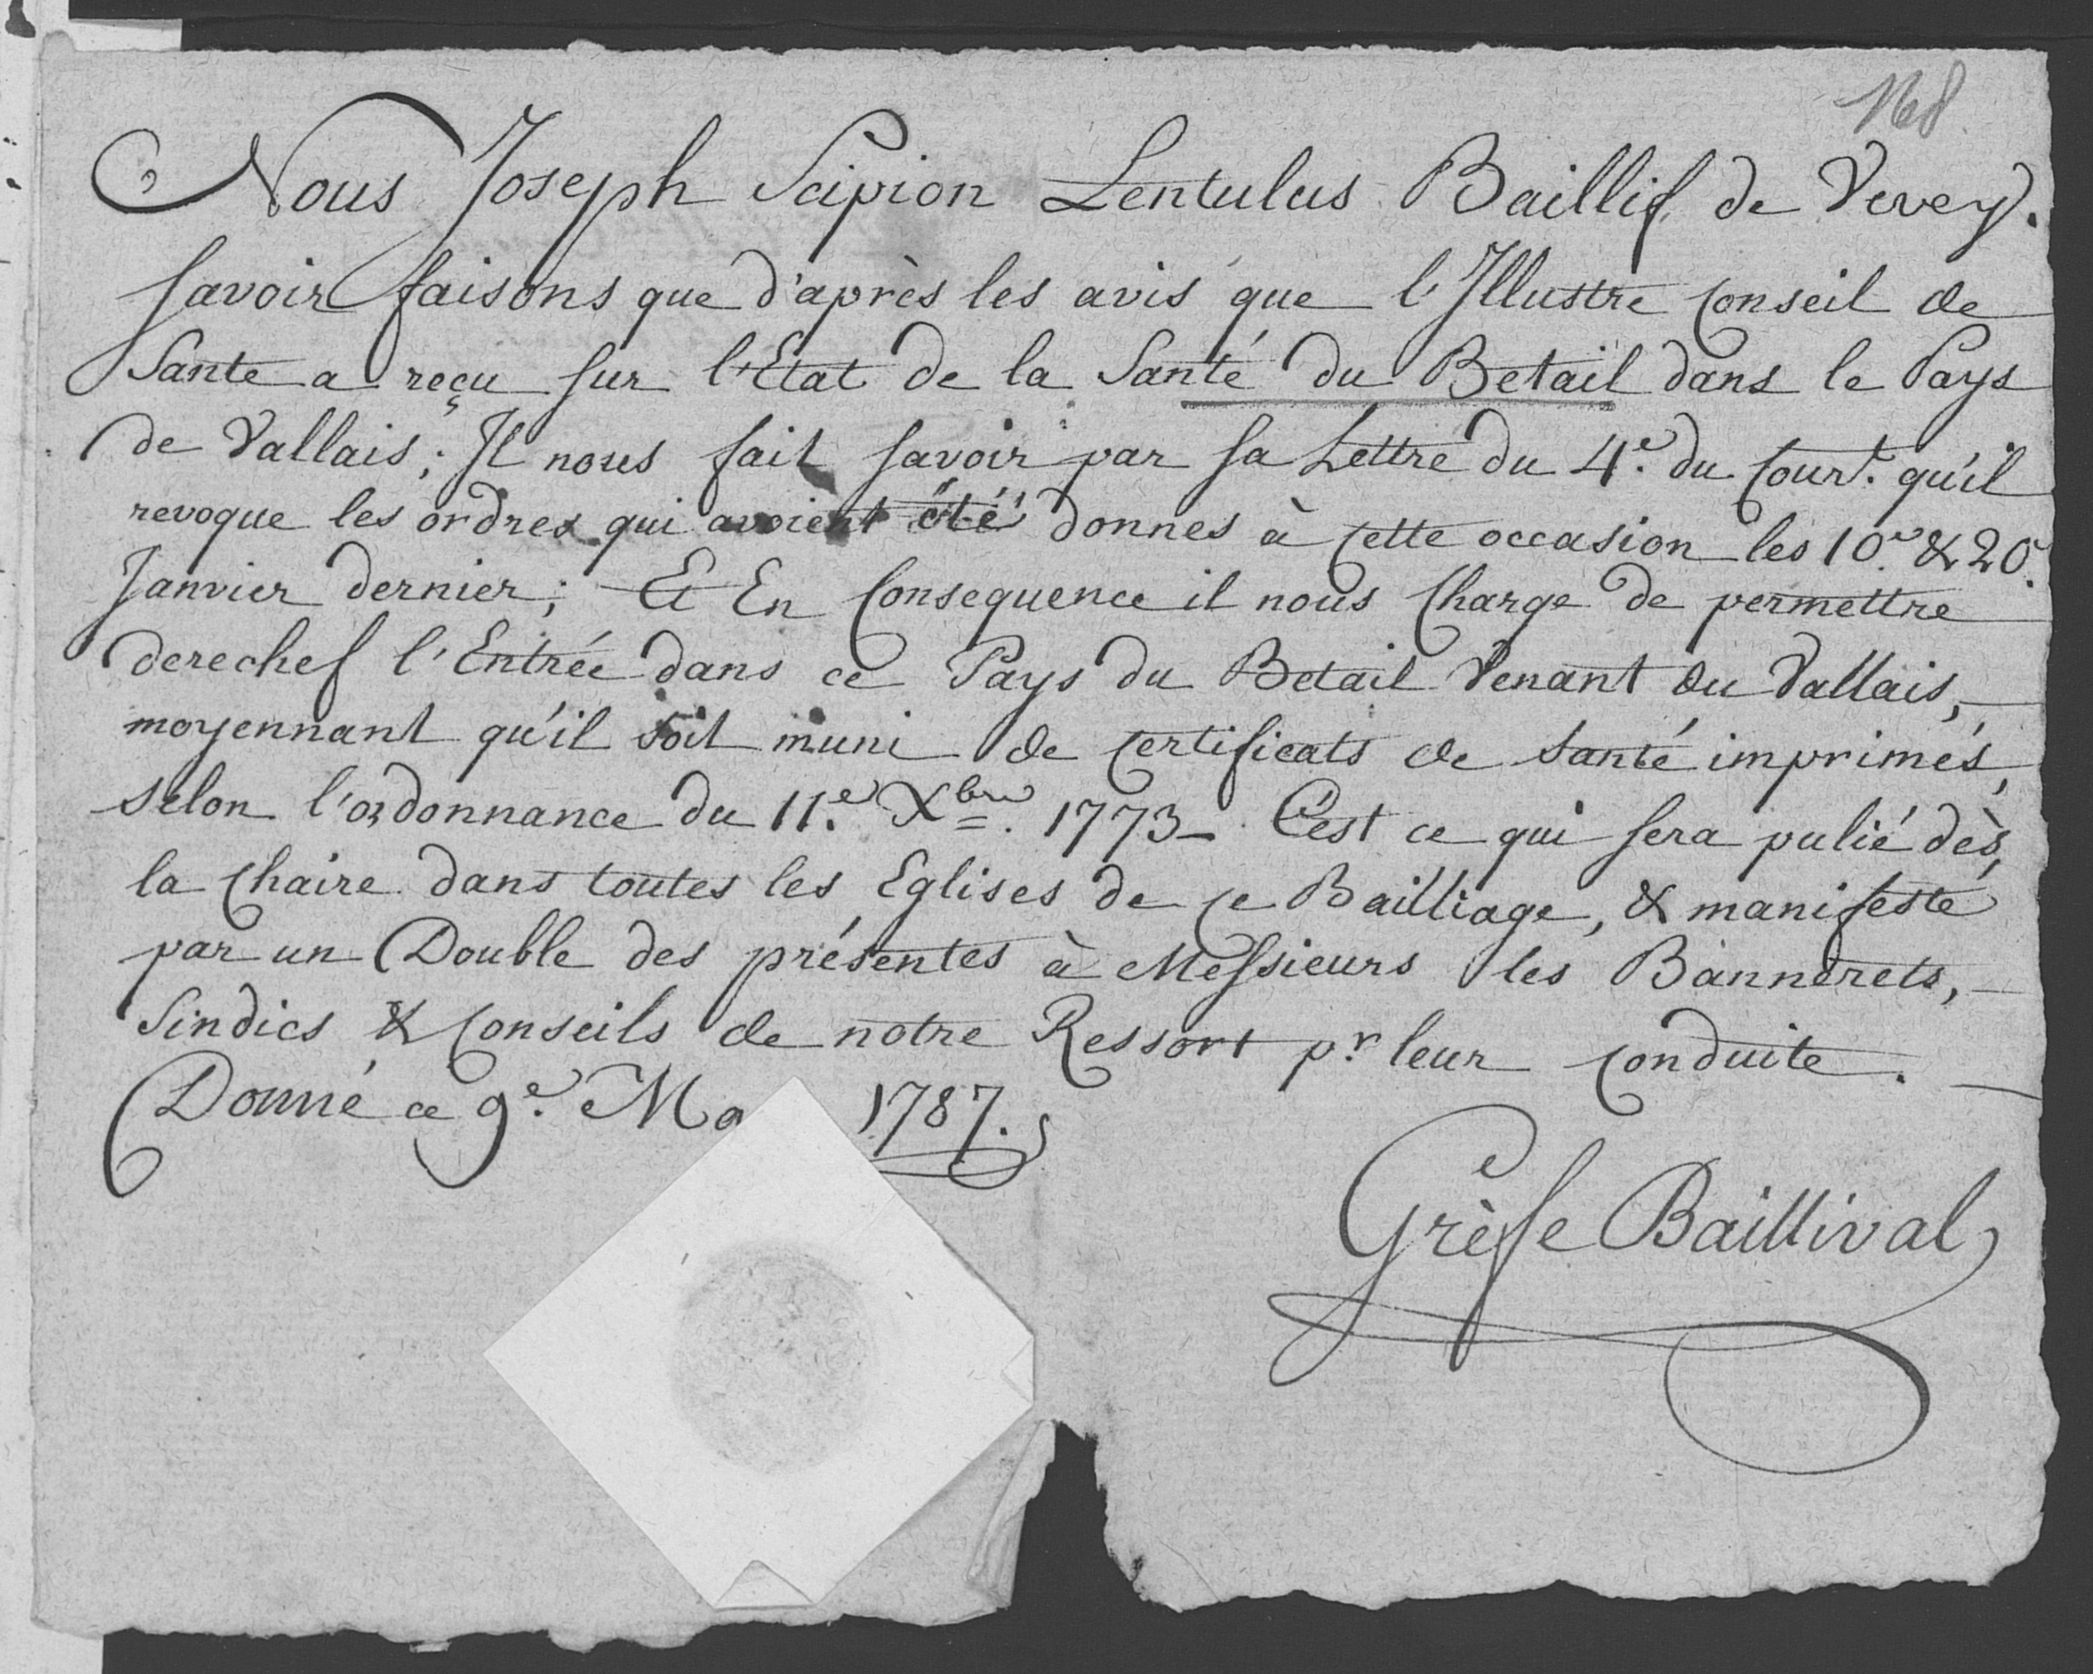 168.
Nous Joseph Scipion Lentulus Baillif de Vevey.
savoir faisons que d'après les avis que l'Illustre Conseil de
Sante a reçu sur l'Etat de la Santé du Betail dans le Pays
de Vallais; Il nous fait savoir par sa Lettre du 4e. du Court. qu'il
revoque les ordres qui avoient été donnes à cette occasion les 10e. & 20e.
Janvier dernier; Et En Consequence il nous Charge de permettre
derechef l'Entrée dans ce Pays du Betail Venant du Vallais,
moyennant qu'il soit muni de Certificats de santé imprimés,
selon l'ordonnance du 11e. Xbre. 1773. C'est ce qui sera pulié dès
la Chaire dans toutes les Eglises de ce Bailliage, & manifesté
par un Double des présentes à Messieurs les Bannerets,
Sindics & Conseils de notre Ressort pr leur Conduite.
Donné ce 9e. Ma 1787.
Grèfe Baillival